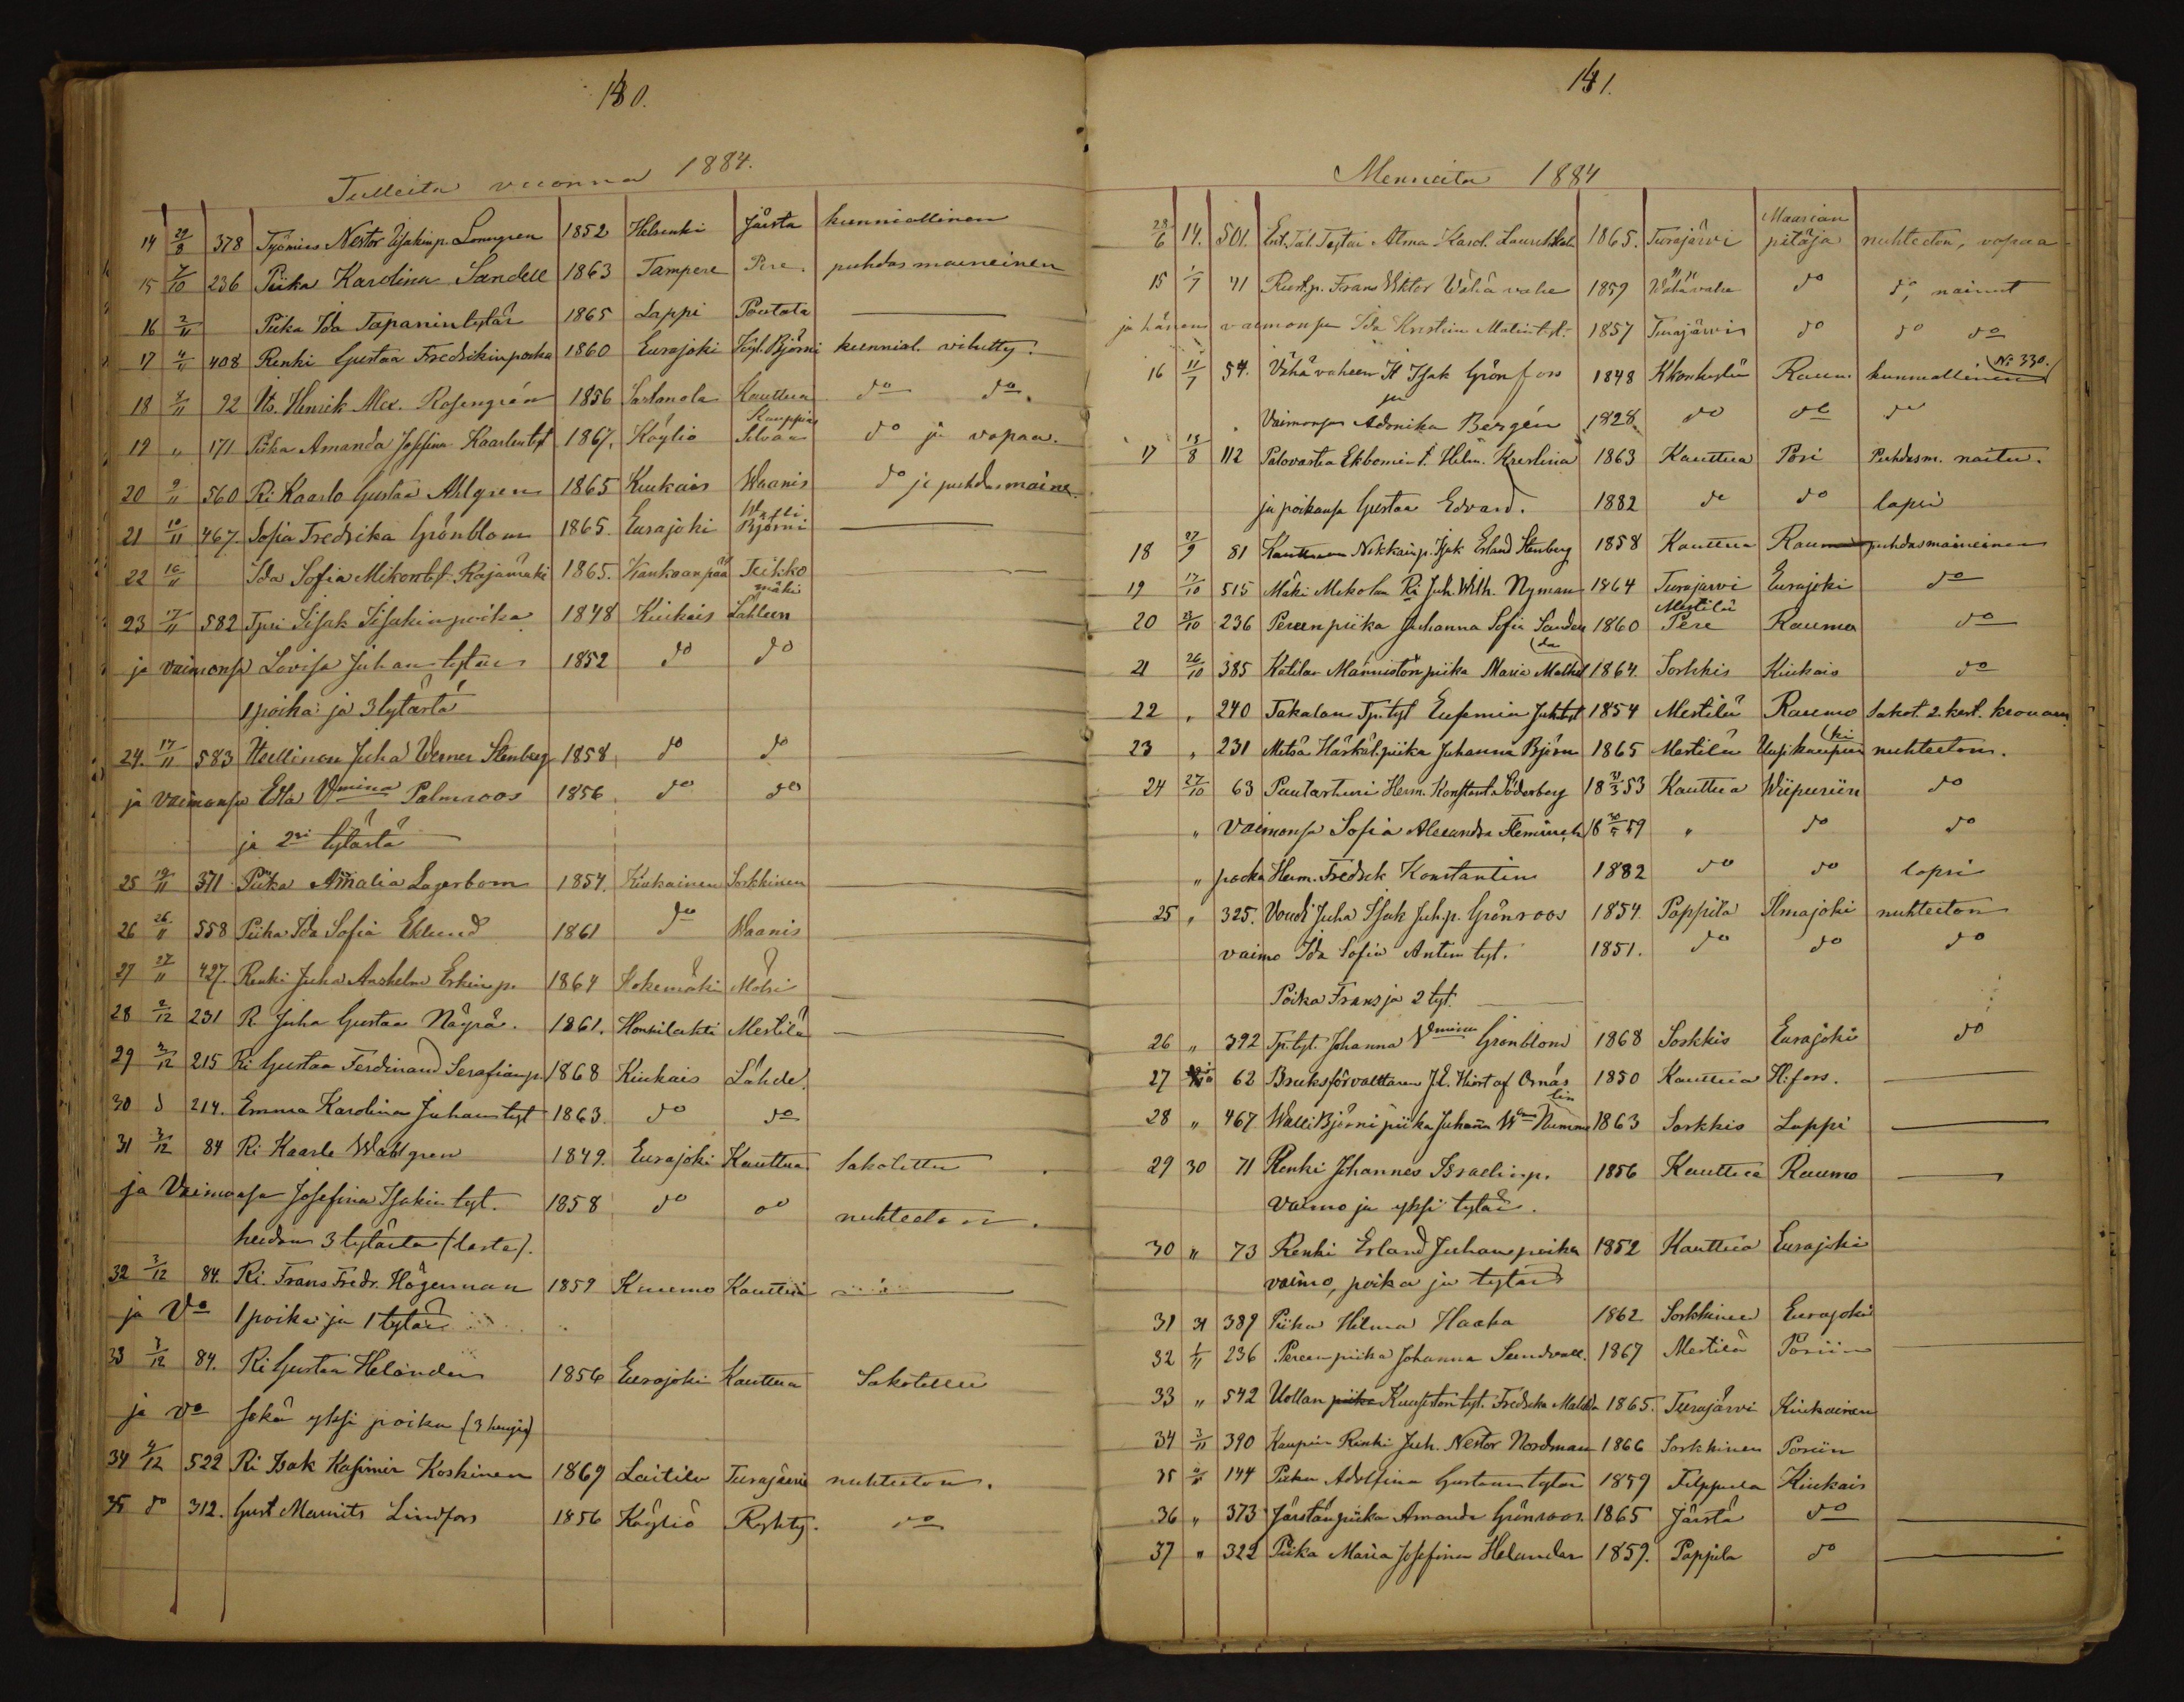 180.
Tulleita vuonna 1884.
14 29/8 378 Työmies Nestor Iisakinp. Lönngren 1852 Helsinki Järsta kunniallinen
15 7/10 236 Piika Karolina Sandell 1863 Tampere Pere. puhdasmaineinen
16 2/11 Piika Ida Tapanintytär 1865 Lappi Poutola
17 4/11 408 Renki Gustaa Fredrikinpoika 1860 Eurajoki Björni kunnial. vihitty.
18 92 Its. Henrik Alex. Rosengrén 1856 Sastamala Kauttua do do.
Kauppias
19 " 171 Piika Amanda Josefina Kaarlentyt 1867, Köyliö do ja vapaa.
20 9/11 560 Ri Kaarlo Gustaa Ahlgren 1865 Kiukais Waanis do ja puhdasmaine
Walli
21 10/11 467. Sofia Fredrika Grönblom 1865. Eurajoki Björni
22 16/11 Ida Sofia Mikontyt. Kajamäki 1865. Kankaanpää Teikko
mäki
23 17/11 582 Tpri Iisak Iisakinpoika 1848 Kiukais Lähteen
ja vaimonsa Lovisa Juhantytär 1852 do do
1 poika ja 3 tytärtä
24. 17/11 583 Itsellinen Juha Werner Stenberg 1858, do do
ja vaimonsa Edla Vmina Palmroos 1856 do do
ja 2si tytärtä
25 19/11 371 Piika Amalia Lagerbom 1854. Kiukainen Sorkkinen
26 26/11 558 Piika Ida Sofia Eklund 1861 do Waanis
27 27/11 427. Renki Juha Anshelm Erkinp. 1864 Kokemäki
28 2/12 231 R. Juha Gustaa Näyrä. 1861. Honkilahti Mestilä
29 2/12 215 Ri Gustaa Ferdinand Serafianp. 1868 Kiukais Lähde.
30 d 214. Emma Karolina Juhantyt 1863. do do
31 3/12 84 Ri Kaarle Wahlgren 1849. Eurajoki Kauttua Sakotettu
ja Vaimonsa Josefina Isakintyt. 1858 do do nuhteeton.
heidän 3 tytärtä (lasta).
32 3/12 84. Ri. Frans Fredr. Högerman 1859 Kauttua
ja Vo 1 poika ja 1 tytär
33 3/12 84. Ri Gustaa Helander 1856 Eurajoki Kauttua Sakotettu
ja vo sekä yksi poika (3 henkeä)
34 4/12 522 Ri Isak Kasimir Koskinen 1869 Laitila Turajärvi nuhteeton.
35 do 312. Gust. Maurits Lindfors 1856 Köyliö do
181.
Menneitä 1884
Maarian
28/6 14. 501. Ent. Tal. Tytär Alma Karol. 1865. Turajärvi pitäjä nuhteeton, vapaa
15 1/7 41 Rustp. Frans Viktor Wähävahe 1859 Wähävahe do do, nainut
ja hänen vaimonsa Ida Kristina Matintyt. 1857 Turajärvis do do do
No 330.
16 11/7 54. Vähävaheen It Isak Grönfors 1848 Raum. kunniallinen
ja
Vaimonsa Adonika Bergén 1828 do do do
17 18/8 112 Palovartia Ekbomin t. Helm. Krestina 1863 Kauttua Pori Puhdasm. naitu.
ja poikansa Gustaa Edvard. 1882 do do lapsi
18 27/9 81 Nikkarip. Isak Erland Stenberg 1858 Kauttua Rauma puhdasmaineinen
19 17/10 515 Mäki Mikolan Ri Juh. Wilh. Nyman 1864 Turajärvi Eurajoki do
Mestilä
20 23/10 236 Pereen piika Juhanna Sofia Sandell 1860 Pere Rauma do
21 26/10 385 Katilan Männistön piika Maria Mathild 1864. Sorkkis Kiukais do
da
22 " 240 Takalan Tp. tyt Eufemia Juhtyt 1854 Mestilä Raumo Sakot. 2. kert. kronan
ki
23 " 231 Metsä Härkäl. piika Juhanna Björn 1865 Mestilä Uusikaupun nuhteeton.
24 27/10 63 Puutarturi Herm. Konstant. Söderberg 18 31/3 53 Kauttua Wiipuriin do
" Vaimonsa Sofia Alexandra Fleminch 18 59 " do do
" poika Herm. Fredrik Konstantin 1882 do do lapsi
25 " 325. Voudi Juha Isak Juhp. Grönroos 1854. Pappila Ilmajoki nuhteeton
vaimo Ida Sofia Antin tyt. 1851. do do do
Poika Frans ja 2 tyt.
26 " 392 Tp. tyt. Johanna Vmina Grönblom 1868 Sorkkis Eurajoki do
27 62 Bruksförvalttaren J.E. Thirst af Ornäs 1850 Kauttua H:fors.
lin
28 " 467 Walli Björni piika Juhanna Wna Numme 1863 Sorkkis Lappi
29 30 71 Renki Johannes Israelinp. 1856 Kauttua Raumo
Vaimo ja yksi tytär.
30 " 73 Renki Erland Juhanpoika 1852 Kauttua Eurajoki
vaimo, poika ja tytär
31 31 389 Piika Hilma Haaka 1862 Sorkkinen Eurajoki
32 1/11 236 Pereen piika Johanna Sundvall. 1867 Mestilä Poriin
33 " 542 Uollan piika Kuusiston tyt. Fredrika Matilda 1865. Turajärvi Kiukainen
34 3/11 390 Kaupin Renki Juh. Nestor Nordman 1866 Sorkkinen Poriin
35 144 Piika Adolfina Gustaantytär 1859 Filppula Kiukais
36 " 373 Järstän piika Amanda Grönroos. 1865 Järstä do
37 " 322 Piika Maria Josefina Helander 1859. Pappila do